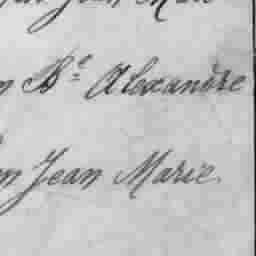 Jean Marie
n Bte Alexandre
n Jean Marie.